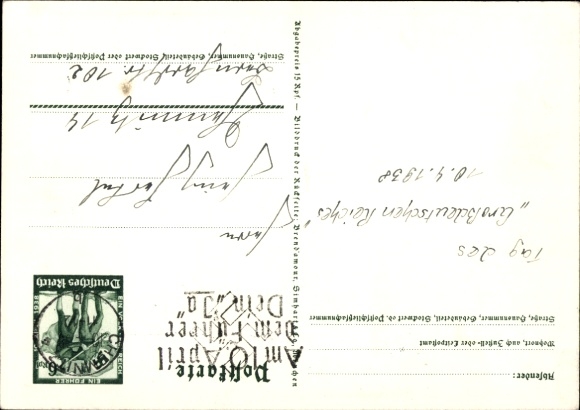 Postkarte
Absender:
Wohnort, auch Zustell- oder Leitpostamt
Straße, Hausnummer, Gebäudeteil, Stockwerk od. Postschließfachnummer
Tag des
„Großdeutschen Reiches“
10.4.1938
Abgabepreis 15 Rpf. — Bilddruck der Rückseite:
EIN FÜHRER
EIN VOLK
EIN REICH
Deutsches Reich
CHEMNITZ
Am 10. April
dem Führer
Dein „Ja“
Herrn
Chemnitz 14
102
Straße, Hausnummer, Gebäudeteil, Stockwerk oder Postschließfachnummer